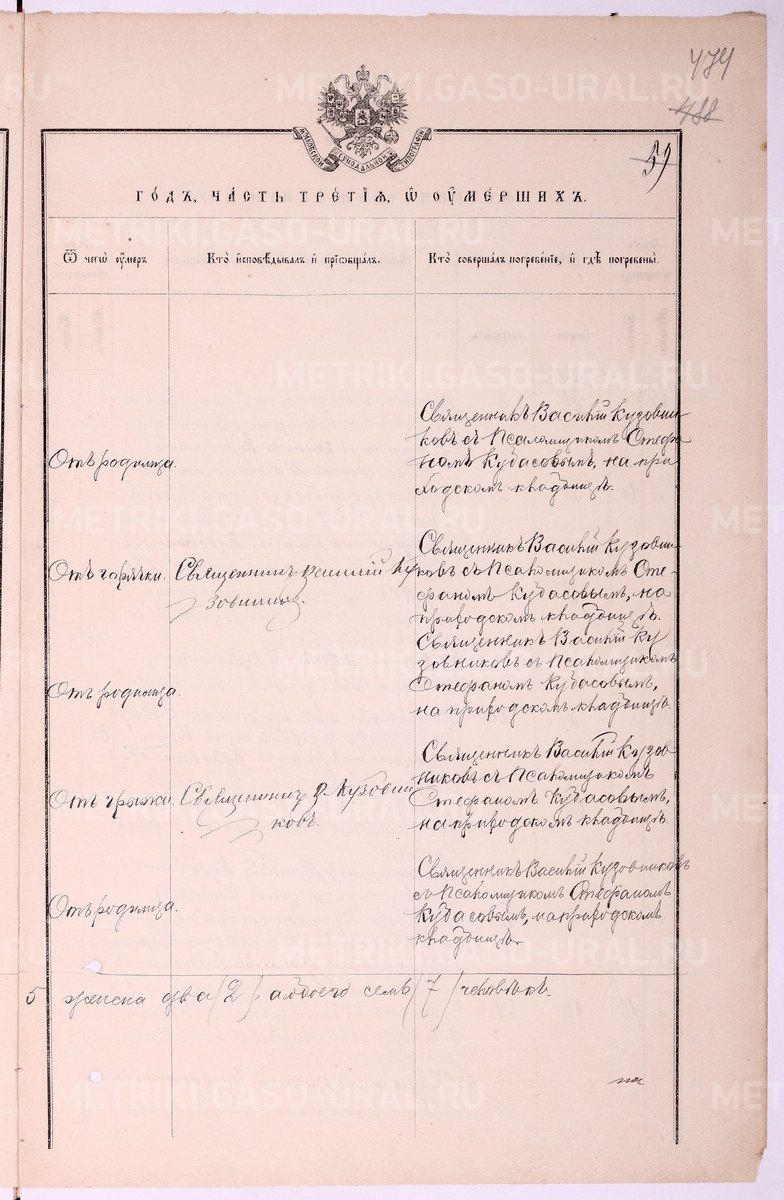 474
488
59
МОСКОВСКОЙ СУНОДАЛЬНОЙ ТИПОГРАФІИ
ГО́ДЪ, ЧА́СТЬ ТРЕ́ТІѦ, Ѡ҆ ОУ҆МЕ́РШИХЪ.
Ѿ чегѡ̀ оу҆́меръ
Кто̀ и҆сповѣ́дывалъ и҆ прїѡбща́лъ.
Кто̀ соверша́лъ погребе́нїе, и҆ гдѣ̀ погребены̀.
Отъ родимца.
Священникъ Василій Кузовни-
ковъ съ Псаломщикомъ Стефа
номъ Кубасовымъ, на при
ходскомъ кладбищѣ.
Отъ горячки.
Священникъ Василій Ку
зовников.
Священникъ Василій Кузовни-
ковъ съ Псаломщикомъ Сте
фаномъ Кубасовымъ, на
приходскомъ кладбищѣ.
Отъ родимца
Священникъ Василій Ку
зовниковъ съ Псаломщикомъ
Стефаномъ Кубасовымъ,
на приходскомъ кладбищѣ
Отъ грыжи
Священникъ В. Кузовни
ковъ.
Священникъ Василій Кузов-
никовъ съ Псаломщикомъ
Стефаномъ Кубасовымъ,
на приходскомъ кладбищѣ.
Отъ родимца.
Священникъ Василій Кузовниковъ
съ Псаломщикомъ Стефаномъ
Кубасовымъ, на приходскомъ
кладбищѣ.
5 женска два (2), а обоего семь (7) человѣкъ.
METRIKI.GASO-URAL.RU